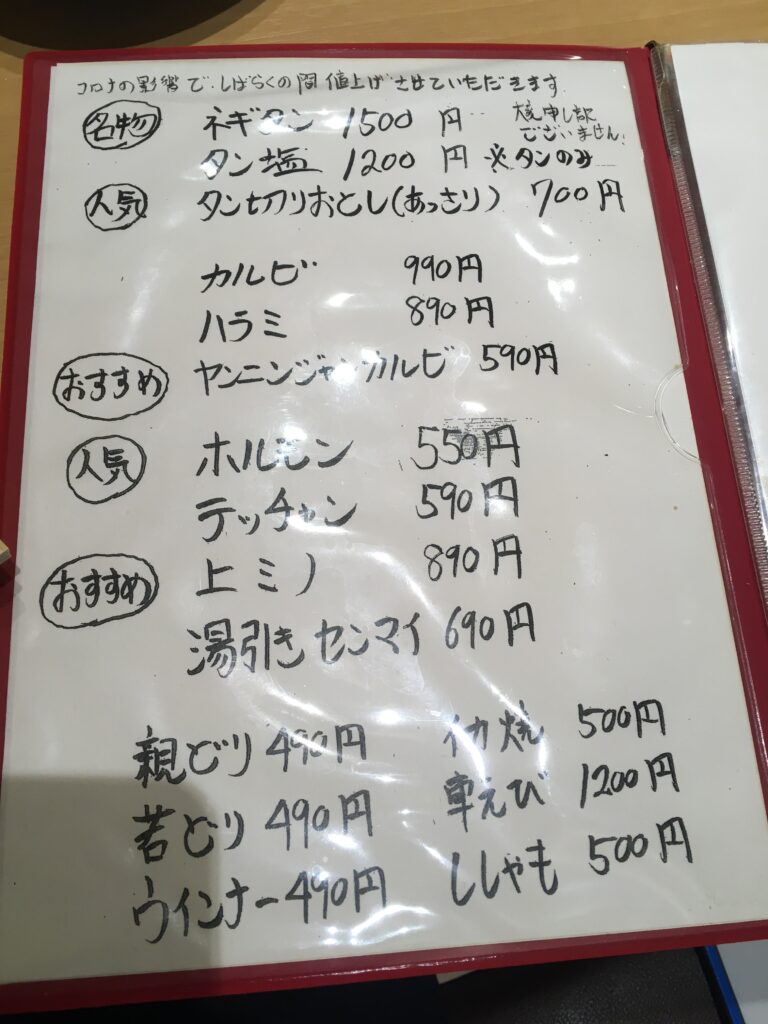 コロナの影響で、しばらくの間値上げさせていただきます
名物 ネギタン 1500円 大変申し訳
ございません。
タン塩 1200円 ※タンのみ
人気 タン切りおとし(あっさり) 700円
カルビ 990円
ハラミ 890円
おすすめ ヤンニンジャンカルビ 590円
人気 ホルモン 550円
テッチャン 590円
おすすめ 上ミノ 890円
湯引きセンマイ 690円
親どり 490円 イカ焼 500円
若どり 490円 車えび 1200円
ウインナー 490円 ししゃも 500円